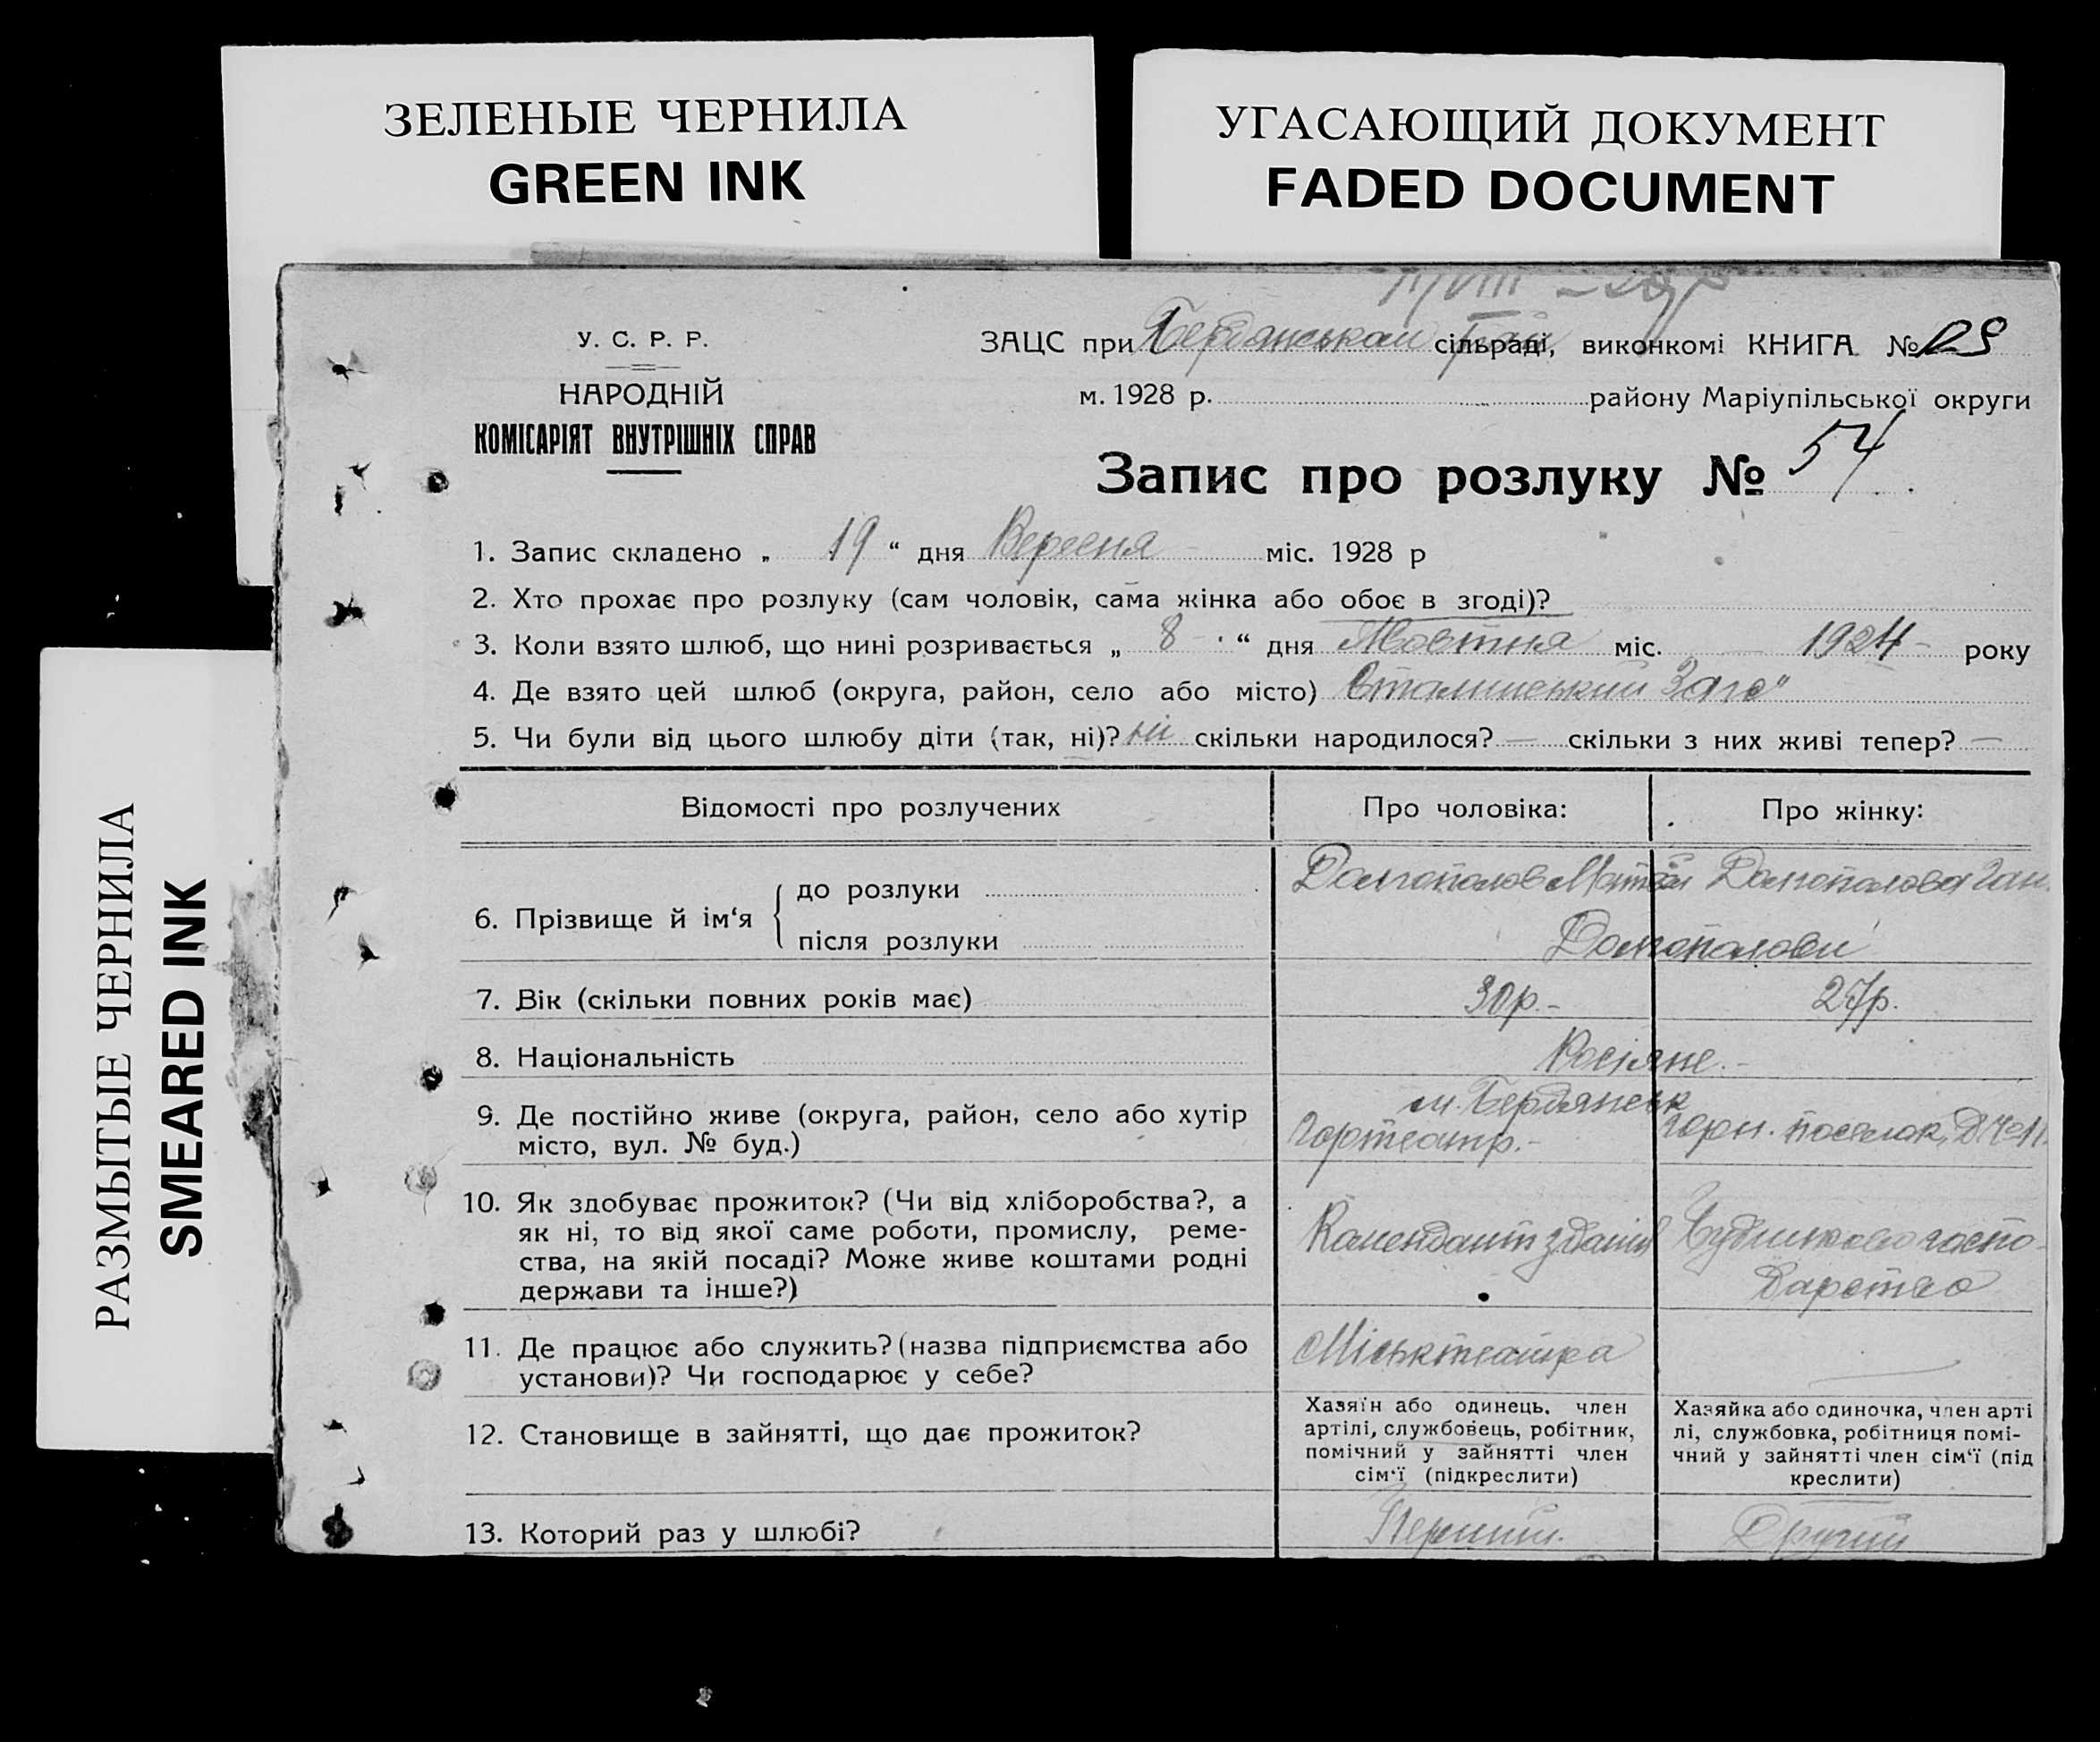 ЗЕЛЕНЫЕ ЧЕРНИЛА
GREEN INK
УГАСАЮЩИЙ ДОКУМЕНТ
FADED DOCUMENT
РАЗМЫТЫЕ ЧЕРНИЛА
SMEARED INK
У. С. Р. Р.
НАРОДНІЙ
КОМІСАРІЯТ ВНУТРІШНІХ СПРАВ
ЗАЦС при Бердянськом рай сільраді, виконкомі КНИГА №
м. 1928 р. району Маріупільської округи
Запис про розлуку № 54
1. Запис складено „ 19 “ дня Вересня міс. 1928 р
2. Хто прохає про розлуку (сам чоловік, сама жінка або обоє в згоді)?
3. Коли взято шлюб, що нині розривається „ 8 “ дня Жовтня міс. 1924 року
4. Де взято цей шлюб (округа, район, село або місто) Сталинський Загс"
5. Чи були від цього шлюбу діти (так, ні)? ні скільки народилося? — скільки з них живі тепер? —
Відомості про розлучених
Про чоловіка:
Про жінку:
6. Прізвище й ім‘я
до розлуки
Долгополов Матвій
Долгополова Ган.
після розлуки
Долгополови
7. Вік (скільки повних років має)
30р.-
27р.
8. Національність
Росіяне.-
9. Де постійно живе (округа, район, село або хутір
місто, вул. № буд.)
м. Бердянськ
Гортеатр.-
Горн. поселок, Д №11.
10. Як здобуває прожиток? (Чи від хліборобства?, а
як ні, то від якої саме роботи, промислу, реме-
ства, на якій посаді? Може живе коштами родні
держави та інше?)
Комендант
госпо-
дарство
11. Де працює або служить? (назва підприємства або
установи)? Чи господарює у себе?
Міськтеатра
12. Становище в зайнятті, що дає прожиток?
Хазяїн або одинець. член
артілі, службовець, робітник,
помічний у зайнятті член
сім‘ї (підкреслити)
Хазяйка або одиночка, член арті
лі, службовка, робітниця помі-
чний у зайнятті член сім‘ї (під
креслити)
13. Которий раз у шлюбі?
Перший.
Другий